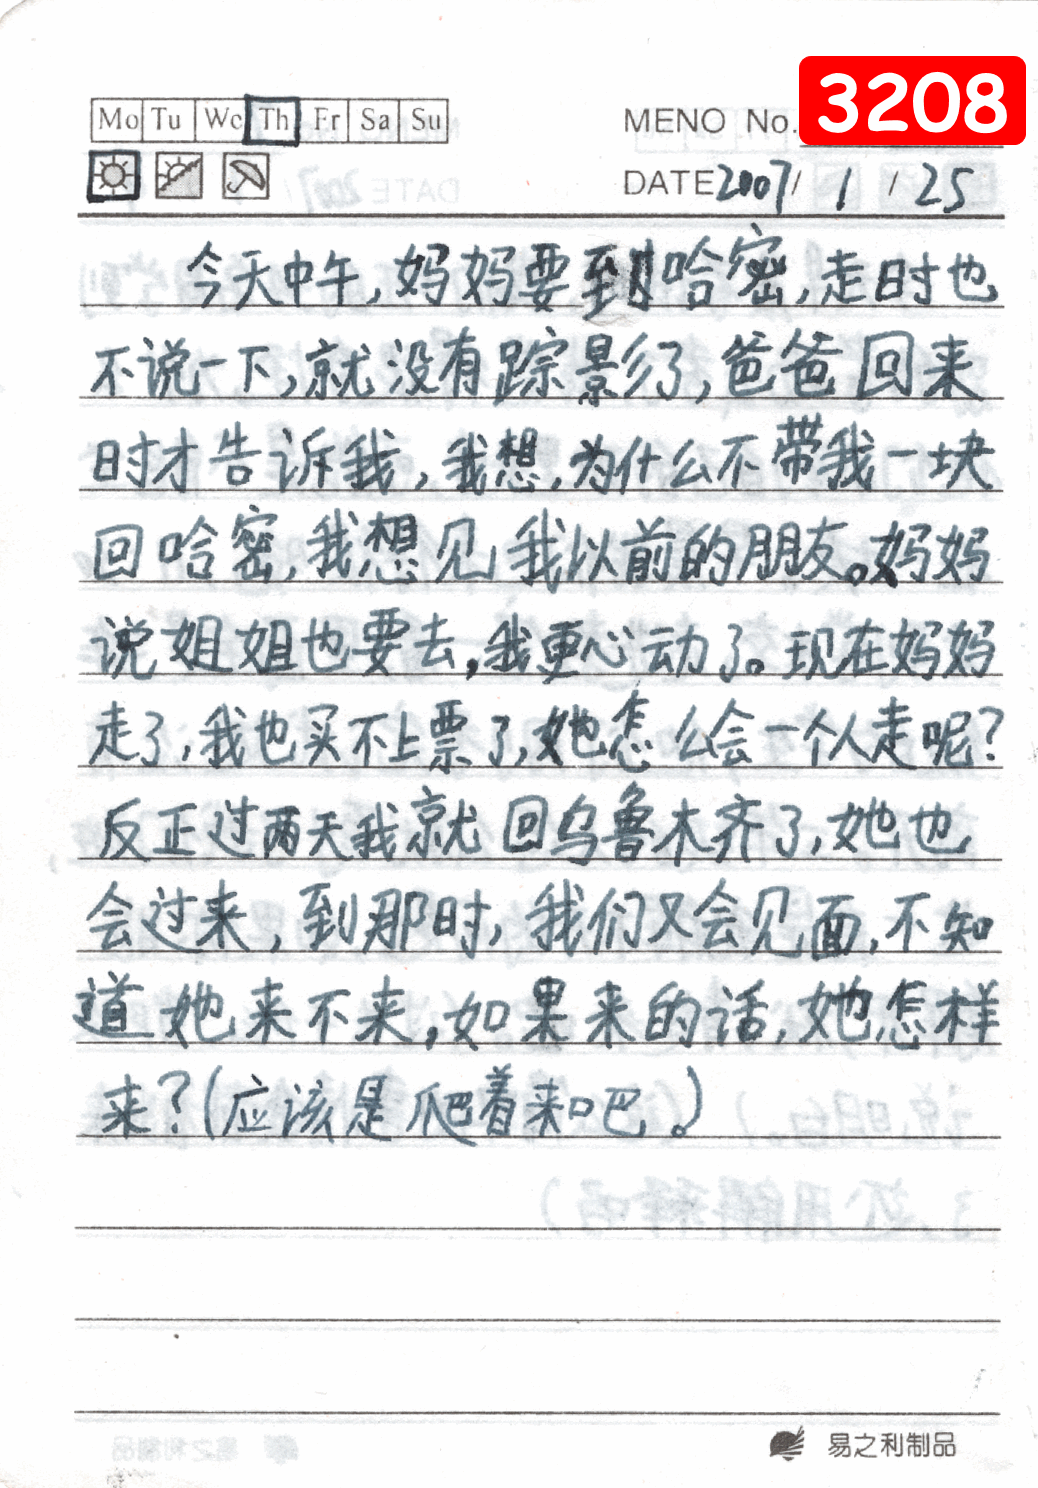 Mo Tu We Th Fr Sa Su
MENO No.
3208
DATE 2007/ 1 / 25
今天中午,妈妈要到哈密,走时也
不说一下,就没有踪影了,爸爸回来
时才告诉我,我想,为什么不带我一块
回哈密,我想见我以前的朋友。妈妈
说姐姐也要去,我更心动了。现在妈妈
走了,我也买不上票了,她怎么会一个人走呢?
反正过两天我就回乌鲁木齐了,她也
会过来,到那时,我们又会见面,不知
道她来不来,如果来的话,她怎样
来?(应该是爬着来吧。)
易之利制品